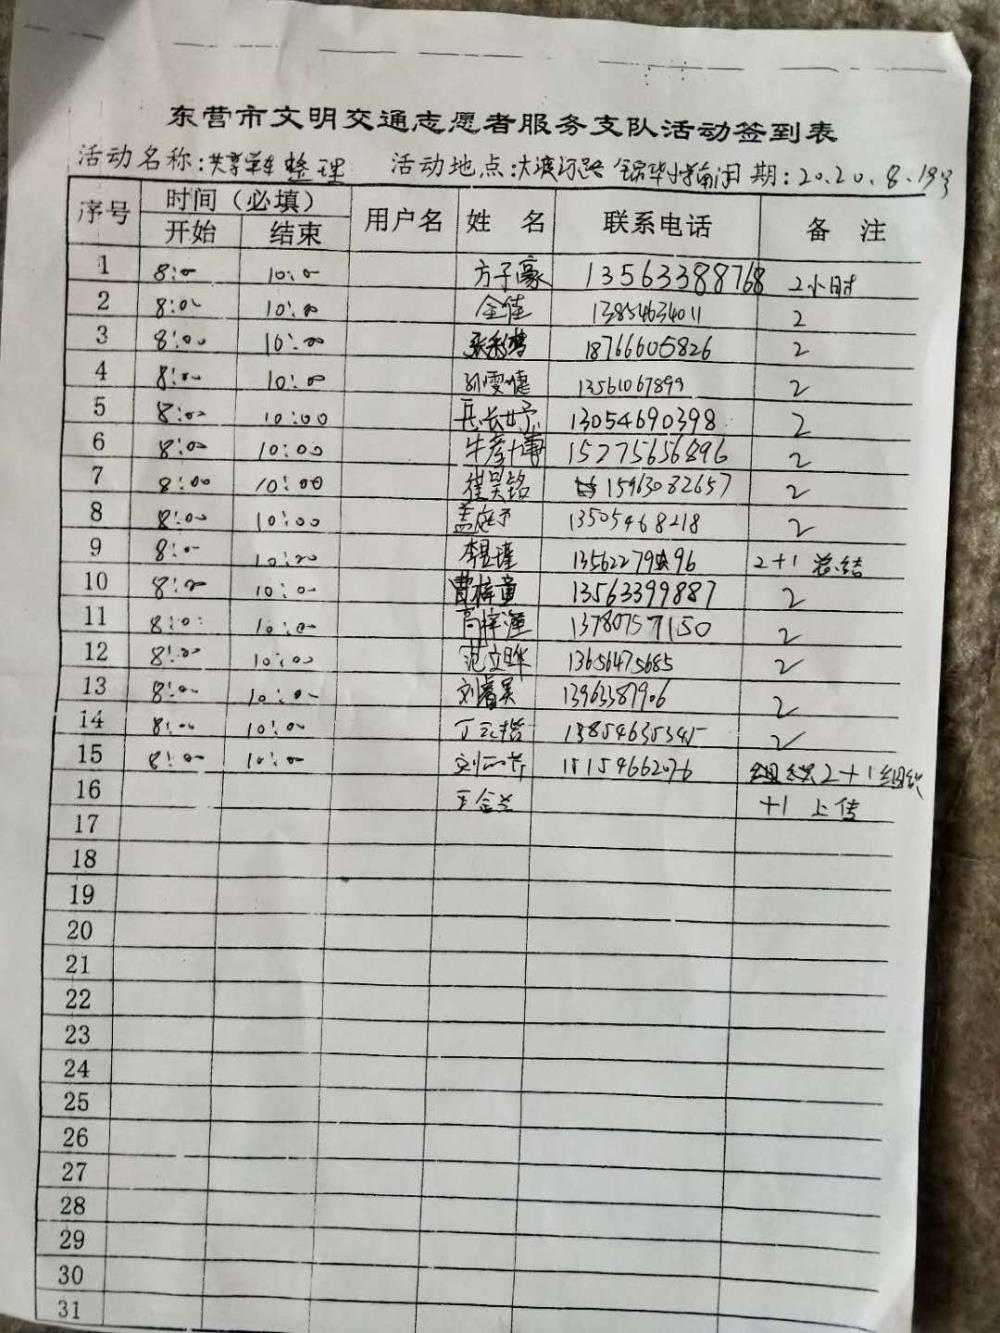 东营市文明交通志愿者服务支队活动签到表
活动名称:共享单车整理 活动地点:大渡河路 锦华小学南门 日期:2020.8.19号
序号 时间(必填) 用户名 姓 名 联系电话 备 注
开始 结束
1 8:00 10:00 方子豪 13563388768 2小时
2 8:00 10:00 金佳 13854634011 2
3 8:00 10:00 18766605826 2
4 8:00 10:00 13561067899 2
5 8:00 10:00 13054690398 2
6 8:00 10:00 牛彦博 15275656896 2
7 8:00 10:00 崔昊铭 15963082657 2
8 8:00 10:00 盖庭予 13505468218 2
9 8:00 10:00 李昱瑾 2+1 总结
10 8:00 10:00 曹梓童 13563399887 2
11 8:00 10:00 高梓涵 13780757150 2
12 8:00 10:00 范文晔 13656475685 2
13 8:00 10:00 刘睿昊 13963387906 2
14 8:00 10:00 13854635345 2
15 8:00 10:00 15154662076 2+1组织
16 +1 上传
17
18
19
20
21
22
23
24
25
26
27
28
29
30
31